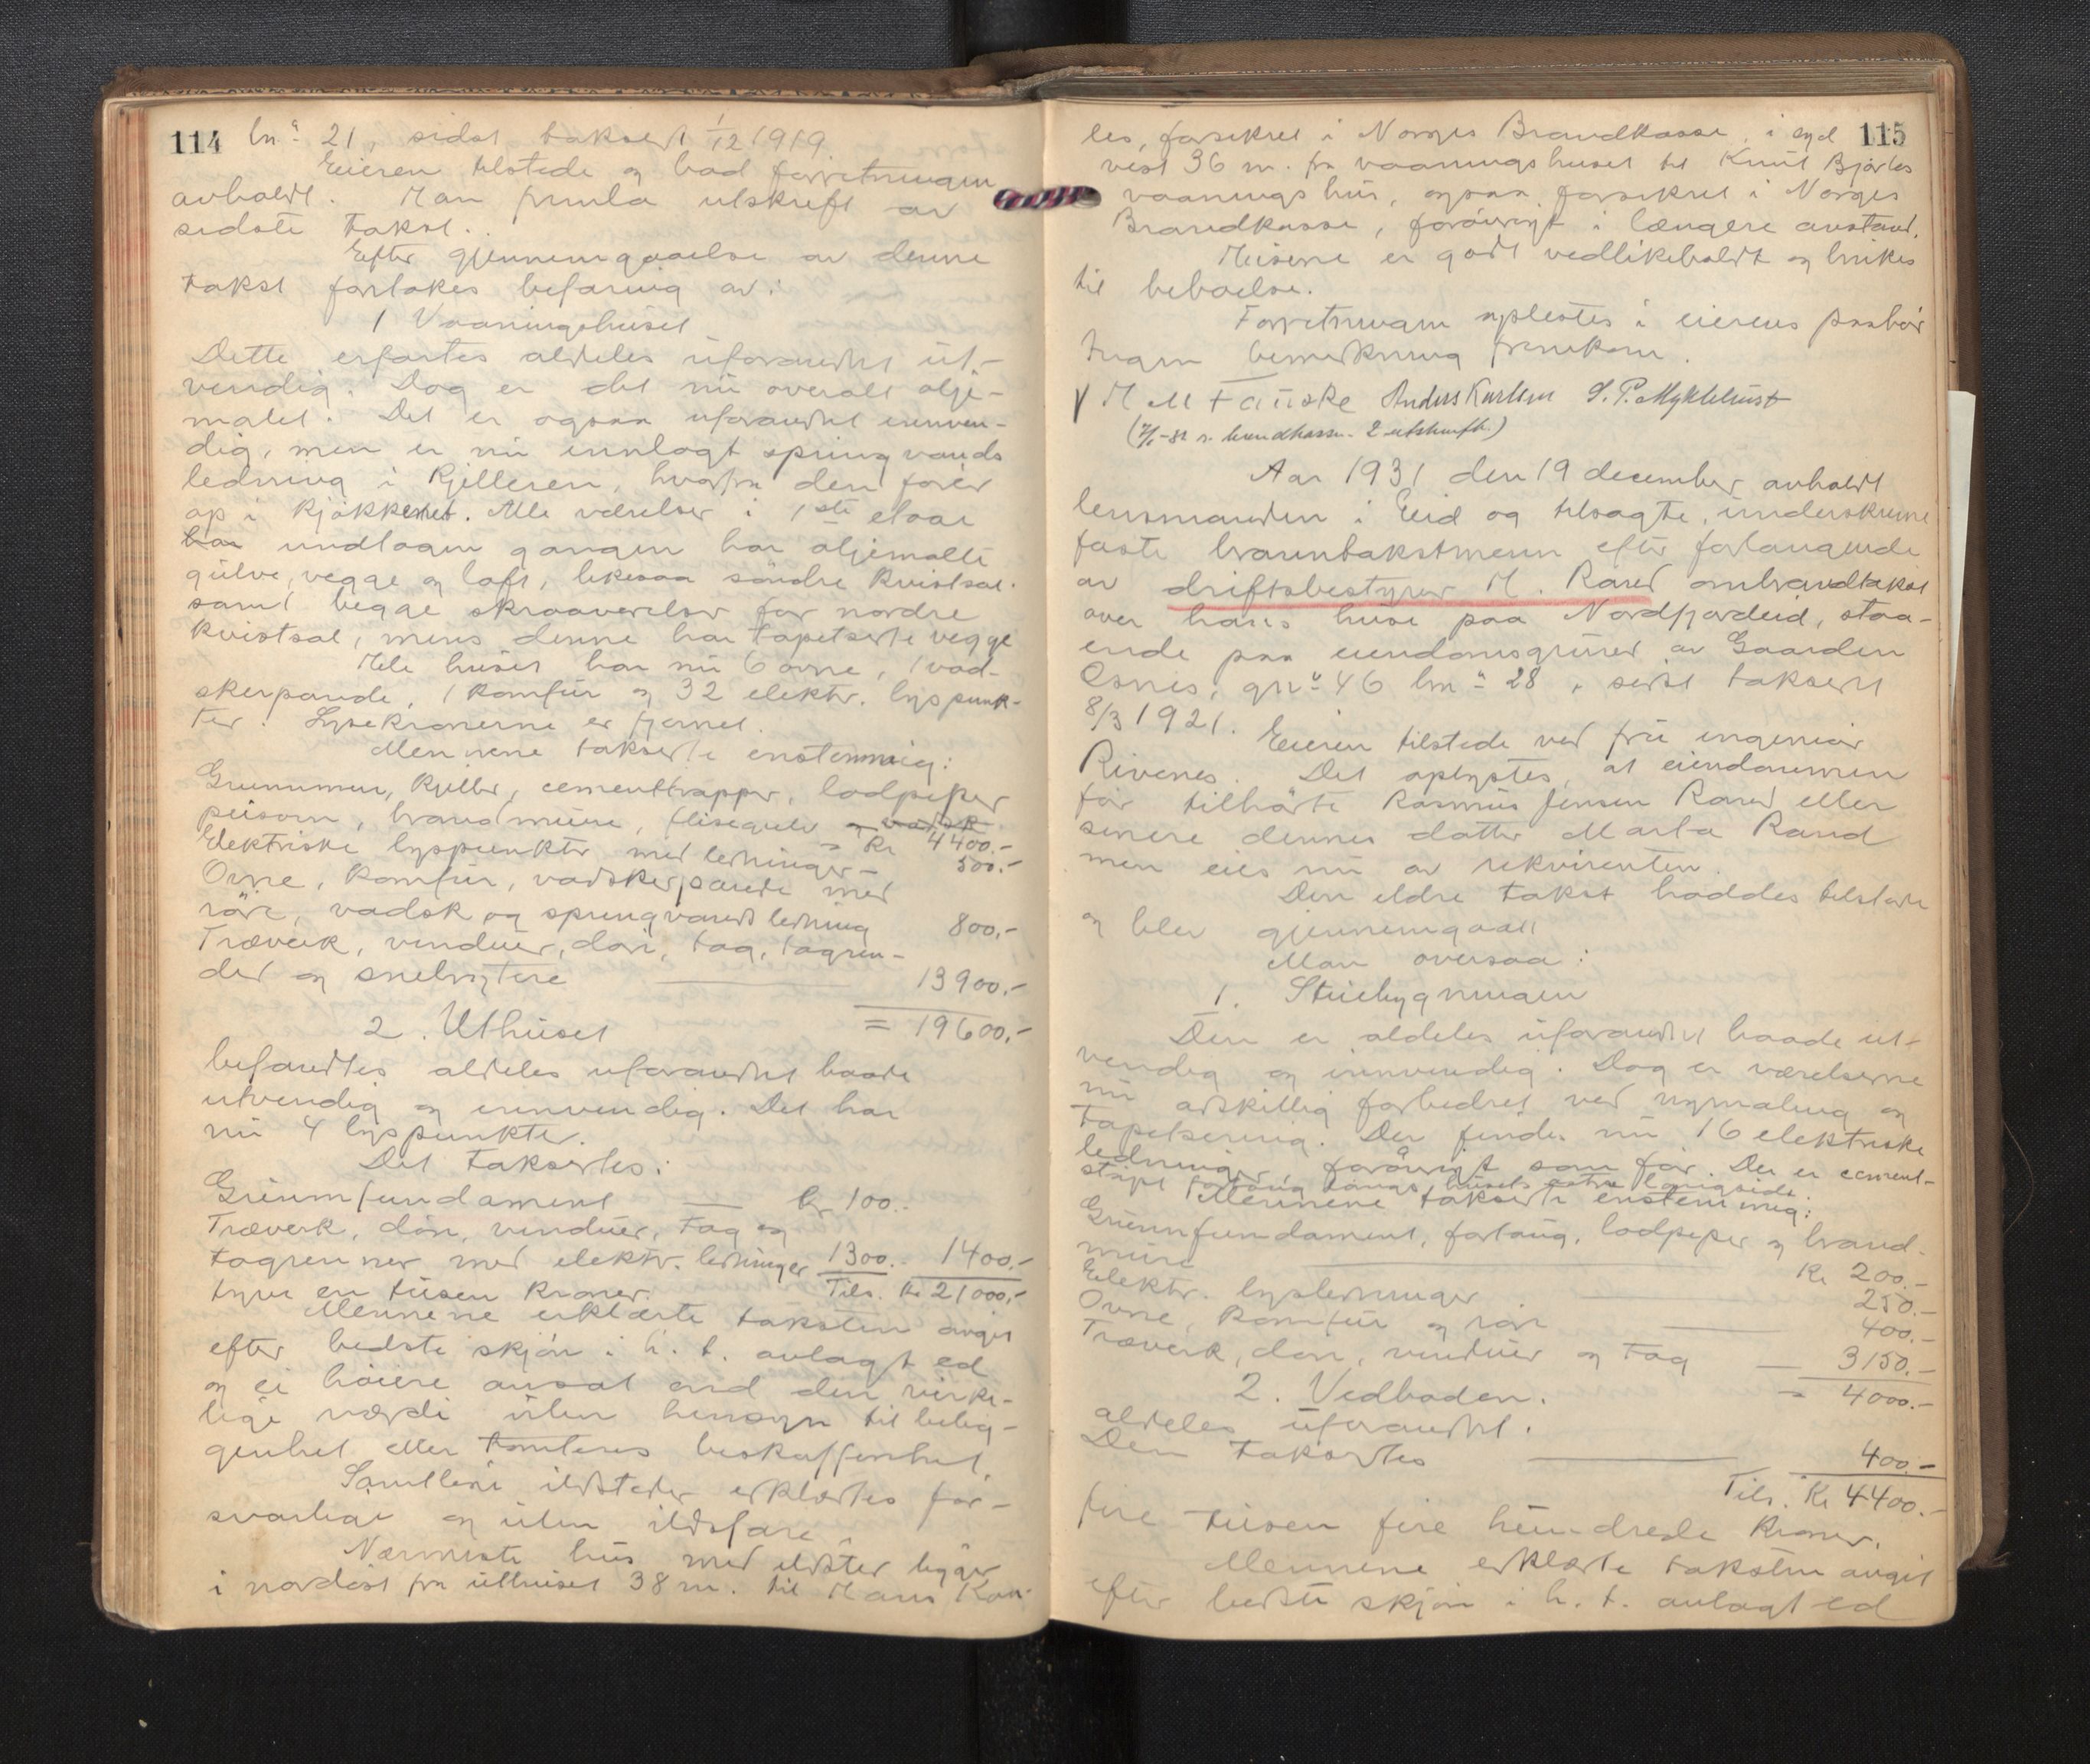 114 bn: 21, sidst taksert 1/12 1919.
Eieren tilstede og bad forretningen
avholdt. Han fremla utskrift av
sidste takst.
Efter gjennemgaaelse av denne
takst foretokes befaring av:
1 Vaaningshuset
Dette erfartes aldeles uforandret ut-
vendig. Dog er det nu overalt olje-
malet. Det er ogsaa uforandret innven-
dig, men er nu innlagt springvands
ledning i kjelleren, hvorfra den fører
op i kjøkkenet. Alle værelser i 1ste etage
har undtagen gangen har oljemalte
gulve, vegge og loft, likesaa søndre kvistsal
samt begge skraaverelser for nordre
kvistsal, mens denne har tapetserte vegge
Hele huset har nu 6 ovne, 1 vad-
skerpande, 1 komfur og 32 elektr. lyspunk-
ter. Lysekronerne er fjernet.
Mennene takserte enstemmig:
Grunnmur, kjeller, cementtrapper, lodpiper
peisovn, brandmure, flisegulv og vadsk
= Kr 4400.-
Elektriske lyspunkter med ledninger - 500.-
Ovne, komfur, vadskerpande med
rør, vadsk og springvandsledning 800,-
Træverk, vinduer, dør, tag, tagren-
der og snebrytere 13900,-
2. Uthuset = 19600,-
befandtes aldeles uforandret baade
utvendig og innvendig. Det har
nu 4 lyspunkter.
Det taksertes:
Grunnfundament — kr 100.-
Træverk, dør, vinduer, tag og
tagrenner med elektr. ledninger 1300.- 1400,-
tyve en tusen kroner. Tils. Kr 21000,-
Mennene erklærte taksten avgit
efter bedste skjøn i h. t. avlagt ed
og ei høiere ansat end den virke-
lige værdi uten hensyn til belig-
genhet eller tomtens beskaffenhet.
Samtlige ildsteder erklærtes for-
svarlige og uten ildsfare
Nærmeste hus med ildster ligger
i nordøst fra uthuset 38 m. til Hans Kan-
115
les, forsikret i Norges Brandkasse, i syd
vest 36 m. fra vaaningshuset til Knut Bjørlos
vaaningshus, ogsaa forsikret i Norges
Brandkasse, forøvrigt i længere avstand.
Husene er godt vedlikeholdt og brukes
til beboelse.
Forretningen oplestes i eierens paahør
Ingen bemerkning fremkom.
H M Fauske Anders Karlsen S. P. Myklebust
Aar 1931 den 19 december avholdt
lensmanden i Eid og tilsagte, underskrevne
faste branntakstmenn efter forlangende
av driftsbestyrer H. Raned ombrandtakst
over hans huse paa Nordfjordeid, staa-
ende paa eiendomsgrund av Gaarden
Osnes, gn: 46 bn: 28, sidst taksert
8/3 1921.
Eieren tilstede ved fru ingeniør
Rivenes. Det oplystes, at eiendommen
før tilhørte Rasmus Jensen Raned eller
senere dennes datter Marta Rand
men eies nu av rekvirenten.
Den eldre takst haddes tilstede
og blev gjennemgaatt
Man oversaa:
1. Stuebygningen
Den er aldeles uforandret baade ut-
vendig og innvendig. Dog er værelserne
nu adskillig forbedret ved nymaling og
tapetsering. Der findes nu 16 elektriske
ledninger, forøvrigt som før. Der er cement-
støpt fortaug langs husets østre langside.
Mennene takserte enstemmig:
Grunnfundament, fortaug, lodpiper og brand-
mure Kr 200.-
Elektr. lysledninger 250.-
Ovne, komfur og rør 400.-
Træverk, dør, vinduer og tag — 3150.-
= 4000.-
2. Vedboden.
aldeles uforandret.
Den taksertes 400.-
Tils. Kr 4400.-
fire tusen fire hundrede kroner.
Mennene erklærte taksten avgit
efter bedste skjøn i h. t. avlagt ed